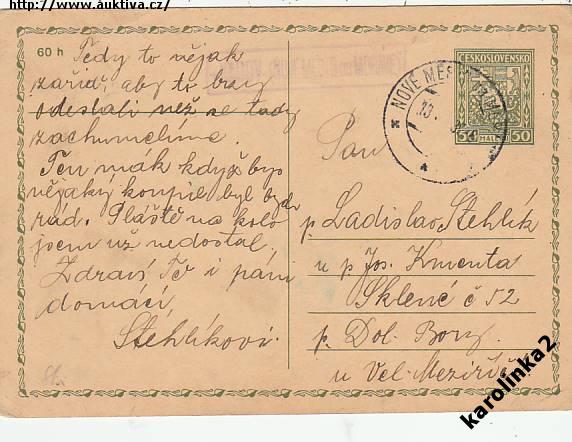 http://www.auktiva.cz/
60 h
Tedy to nějak
zařiď, aby to brzy
odeslali než se tady
zachumelíme.
Ten mák když bys
nějaký koupil byl bych
rád. Pláště na kolo
jsem už nedostal.
Zdraví Tě i paní
domácí
Stehlíkovi.
ČESKOSLOVENSKO
50 HALÉŘŮ 50
NOVÉ MĚSTO
Pan
p. Ladislav Stehlík
u p. Jos. Kmenta
Sklené č 52
p. Dol. Bory
u Vel. Meziříčí
karolinka2